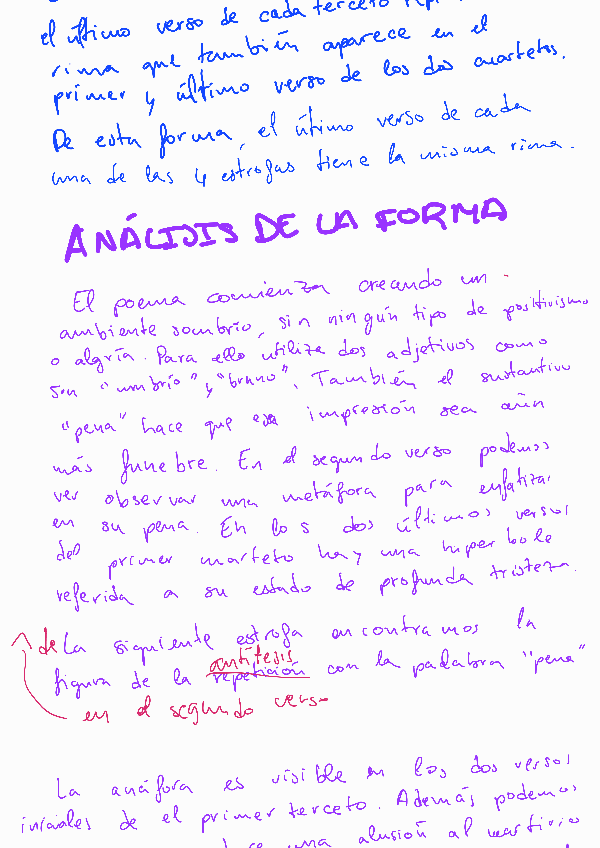 el último verso de cada terceto
rima que también aparece en el
primer y último verso de los dos cuartetos.
De esta forma, el útimo verso de cada
una de las 4 estrofas tiene la misma rima.
ANÁLISIS DE LA FORMA
El poema comienza creando un
ambiente sombrío, sin ningún tipo de positivismo
o algría. Para ello utiliza dos adjetivos como
son "umbrío" y "bruno". También el sustantivo
"pena" hace que esa impresión sea aún
más funebre. En el segundo verso podemos
ver observar una metáfora para enfatizar
en su pena. En los dos últimos versos
del primer cuarteto hay una hiperbole
referida a su estado de profunda tristeza.
de La siguiente estrofa encontramos la
antítesis
figura de la repetición con la padabra "pena"
en el segundo verso
La anáfora es visible en los dos versos
iniciales de el primer terceto. Además podemos
una alusión al martirio